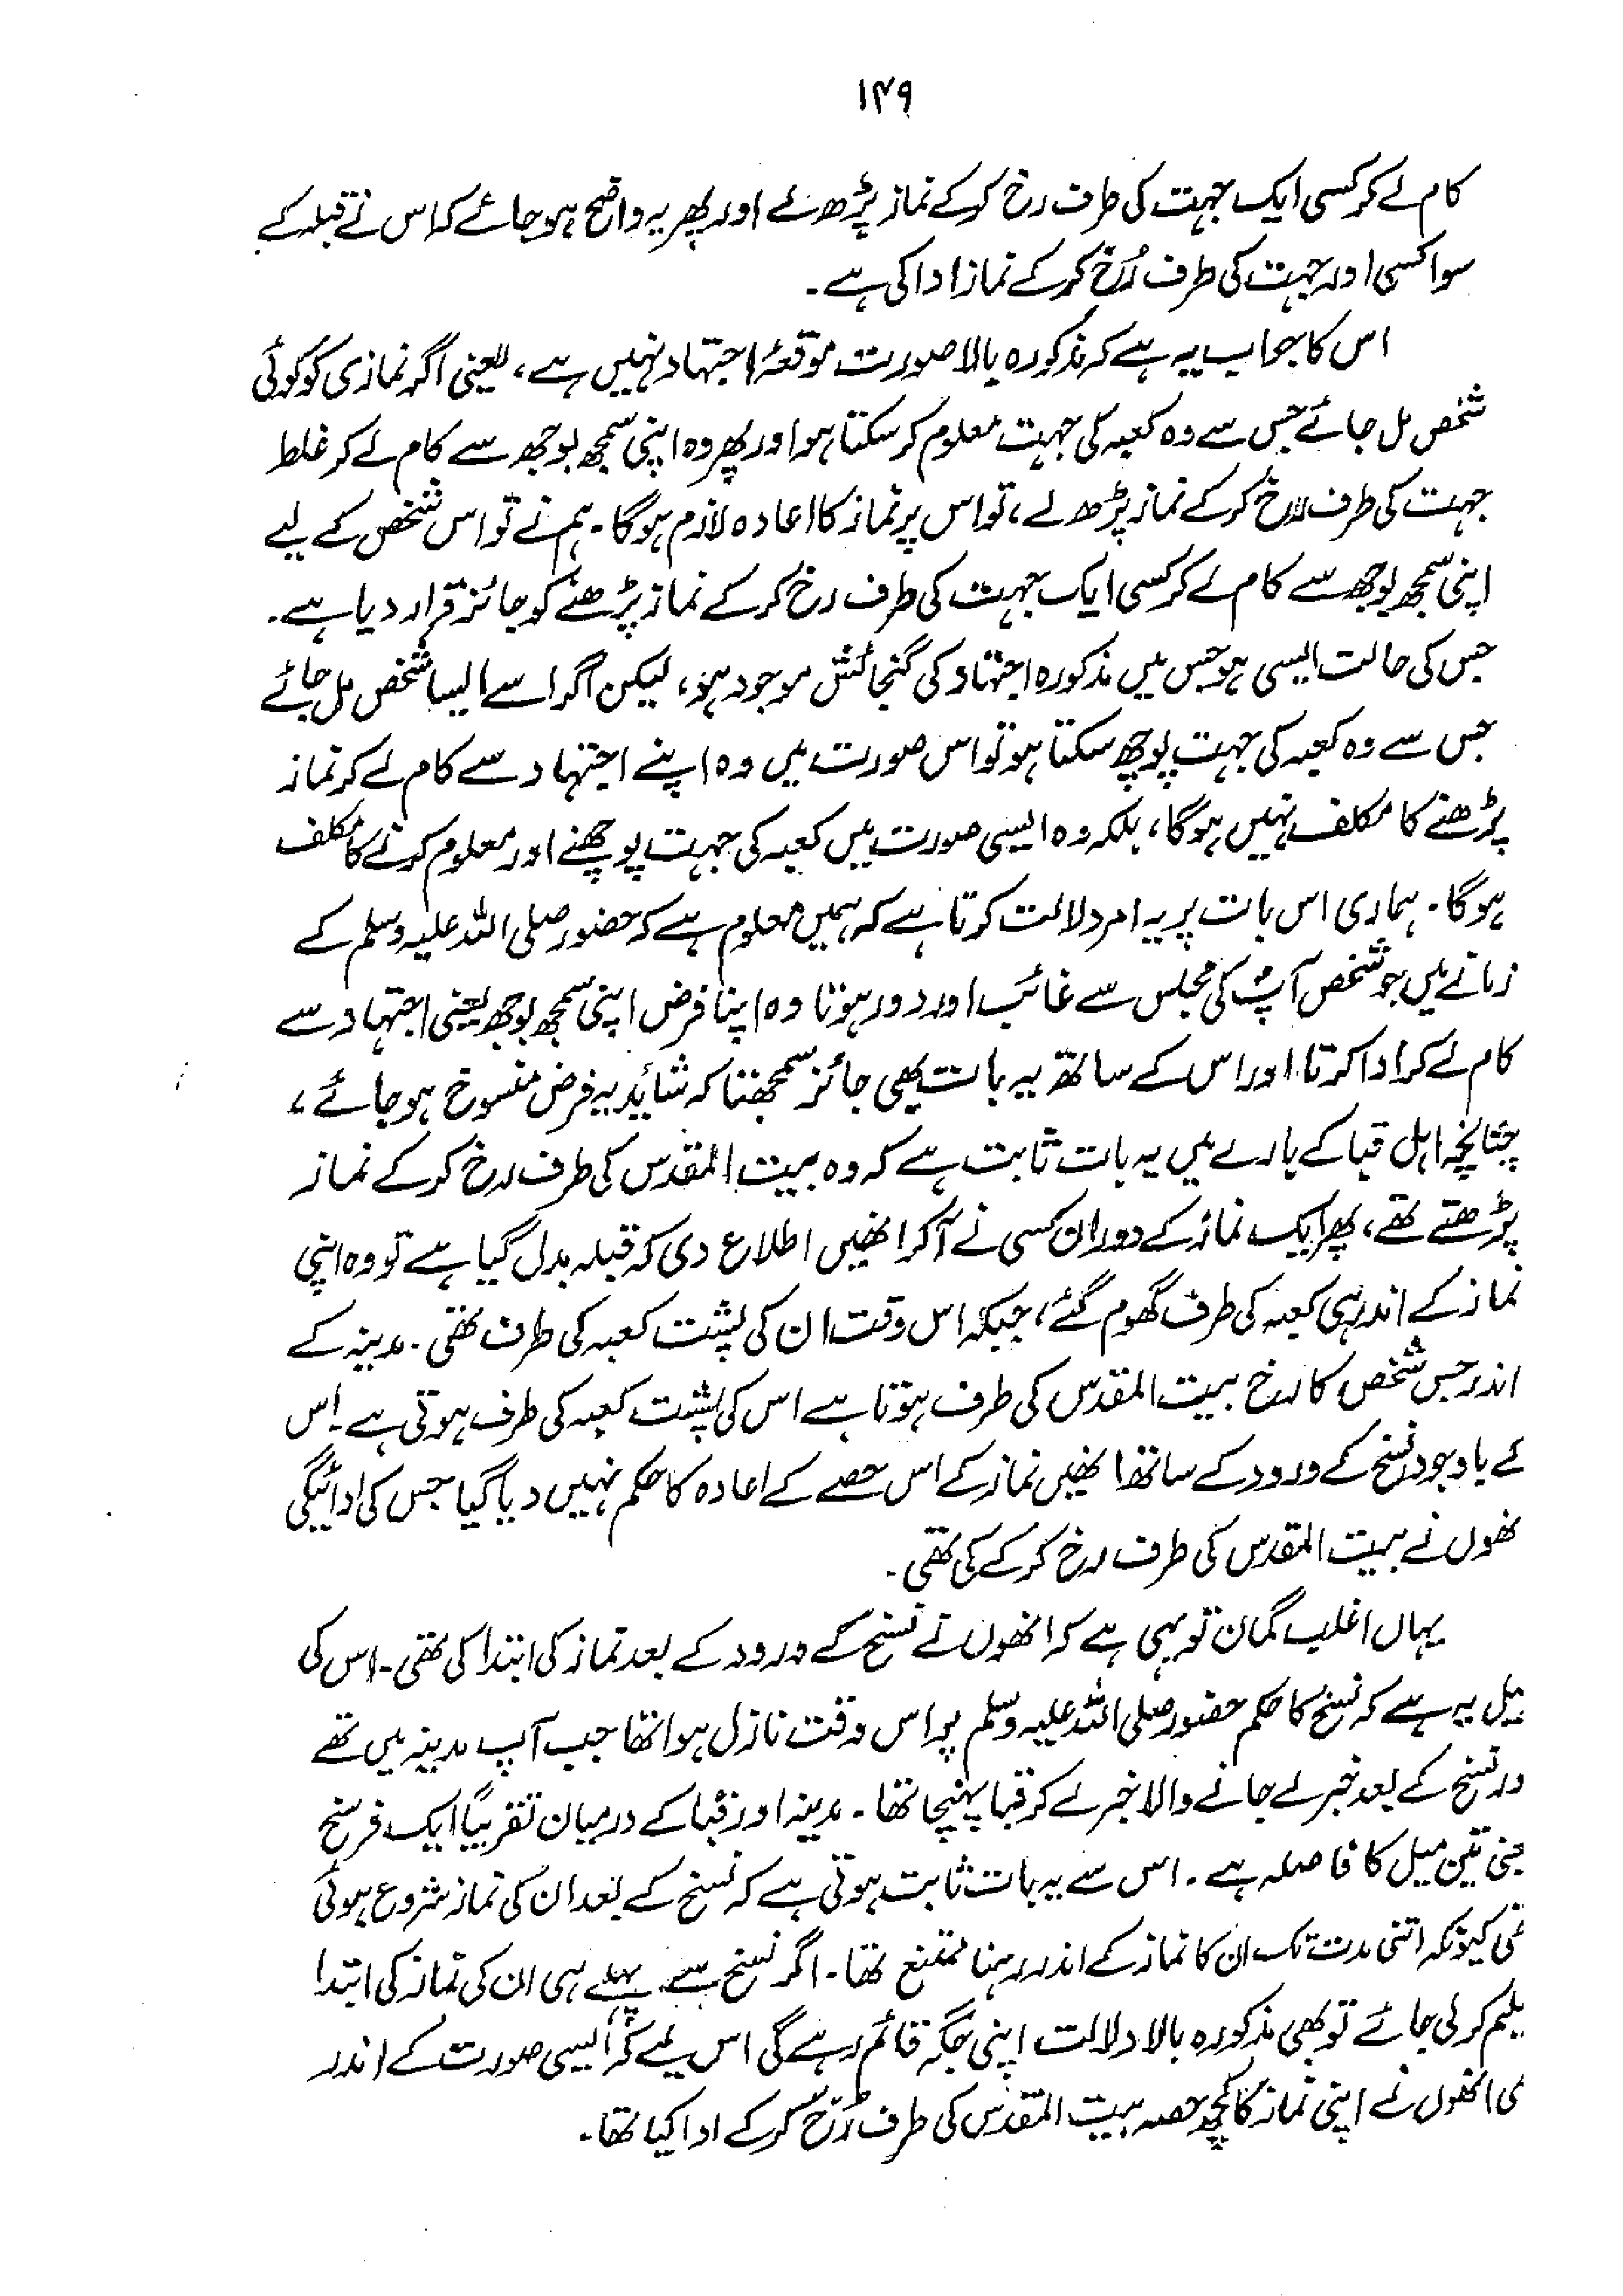 ۱۴۹
کام لے کر کسی ایک جہت کی طرف رخ کر کے نماز پڑھ لے اور پھر یہ واضح ہو جائے کہ اس نے قبلہ کے
سوا کسی اور جہت کی طرف رُخ کر کے نماز ادا کی ہے۔
اس کا جواب یہ ہے کہ مذکورہ بالا صورت موقعۂ اجتہاد نہیں ہے، یعنی اگر نمازی کو کوئی
شخص مل جائے جس سے وہ کعبہ کی جہت معلوم کر سکتا ہو اور پھر وہ اپنی سمجھ بوجھ سے کام لے کر غلط
جہت کی طرف رخ کر کے نماز پڑھ لے، تو اس پر نماز کا اعادہ لازم ہوگا۔ ہم نے تو اس شخص کے لیے
اپنی سمجھ بوجھ سے کام لے کر کسی ایک جہت کی طرف رخ کر کے نماز پڑھنے کو جائز قرار دیا ہے۔
جس کی حالت ایسی ہو جس میں مذکورہ اجتہاد کی گنجائش موجود ہو، لیکن اگر اسے ایسا شخص مل جائے
جس سے وہ کعبہ کی جہت پوچھ سکتا ہو تو اس صورت میں وہ اپنے اجتہاد سے کام لے کر نماز
پڑھنے کا مکلف نہیں ہوگا، بلکہ وہ ایسی صورت میں کعبہ کی جہت پوچھنے اور معلوم کرنے کا مکلف
ہوگا۔ ہماری اس بات پر یہ امر دلالت کرتا ہے کہ ہمیں معلوم ہے کہ حضور صلی اللہ علیہ وسلم کے
زمانے میں جو شخص آپؐ کی مجلس سے غائب اور دور ہوتا وہ اپنا فرض اپنی سمجھ بوجھ یعنی اجتہاد سے
کام لے کر ادا کرتا اور اس کے ساتھ یہ بات بھی جائز سمجھتا کہ شائد یہ فرض منسوخ ہو جائے،
چنانچہ اہل قبا کے بارے میں یہ بات ثابت ہے کہ وہ بیت المقدس کی طرف رخ کر کے نماز
پڑھتے تھے، پھر ایک نماز کے دوران کسی نے آ کر انھیں اطلاع دی کہ قبلہ بدل گیا ہے تو وہ اپنی
نماز کے اندر ہی کعبہ کی طرف گھوم گئے، جبکہ اس وقت ان کی پشت کعبہ کی طرف تھی۔ مدینہ کے
اندر جس شخص کا رخ بیت المقدس کی طرف ہوتا ہے اس کی پشت کعبہ کی طرف ہوتی ہے۔ اس
کے باوجود نسخ کے ورود کے ساتھ انھیں نماز کے اس حصے کے اعادہ کا حکم نہیں دیا گیا جس کی ادائیگی
نھوں نے بیت المقدس کی طرف رخ کر کے کی تھی۔
یہاں اغلب گمان تو یہی ہے کہ انھوں نے نسخ کے ورود کے بعد نماز کی ابتدا کی تھی۔ اس کی
یل یہ ہے کہ نسخ کا حکم حضور صلی اللہ علیہ وسلم پر اس وقت نازل ہوا تھا جب آپ مدینہ میں تھے
ور نسخ کے بعد خبر لے جانے والا خبر لے کر قبا پہنچا تھا۔ مدینہ اور قبا کے درمیان تقریباً ایک فرسخ
عنی تین میل کا فاصلہ ہے۔ اس سے یہ بات ثابت ہوتی ہے کہ نسخ کے بعد ان کی نماز شروع ہوئی
تھی کیونکہ اتنی مدت تک ان کا نماز کے اندر رہنا ممتنع تھا۔ اگر نسخ سے پہلے ہی ان کی نماز کی ابتدا
یلم کر لی جائے تو بھی مذکورہ بالا دلالت اپنی جگہ قائم رہے گی اس لیے کہ ایسی صورت کے اندر
ی انھوں نے اپنی نماز کا کچھ حصہ بیت المقدس کی طرف رُخ کر کے ادا کیا تھا۔